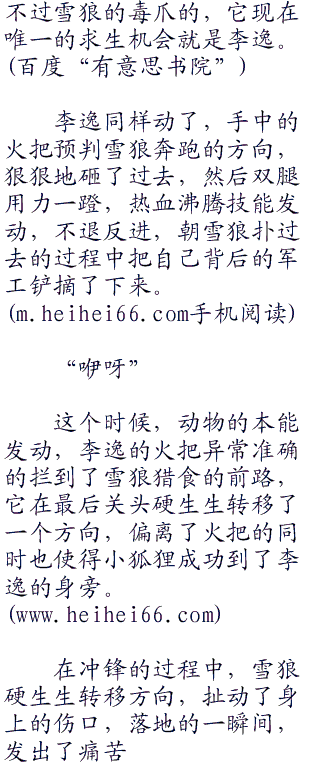 不过雪狼的毒爪的，它现在
唯一的求生机会就是李逸。
(百度“有意思书院”)
李逸同样动了，手中的
火把预判雪狼奔跑的方向，
狠狠地砸了过去，然后双腿
用力一蹬，热血沸腾技能发
动，不退反进，朝雪狼扑过
去的过程中把自己背后的军
工铲摘了下来。
(m.heihei66.com手机阅读)
“咿呀”
这个时候，动物的本能
发动，李逸的火把异常准确
的拦到了雪狼猎食的前路，
它在最后关头硬生生转移了
一个方向，偏离了火把的同
时也使得小狐狸成功到了李
逸的身旁。
(www.heihei66.com)
在冲锋的过程中，雪狼
硬生生转移方向，扯动了身
上的伤口，落地的一瞬间，
发出了痛苦